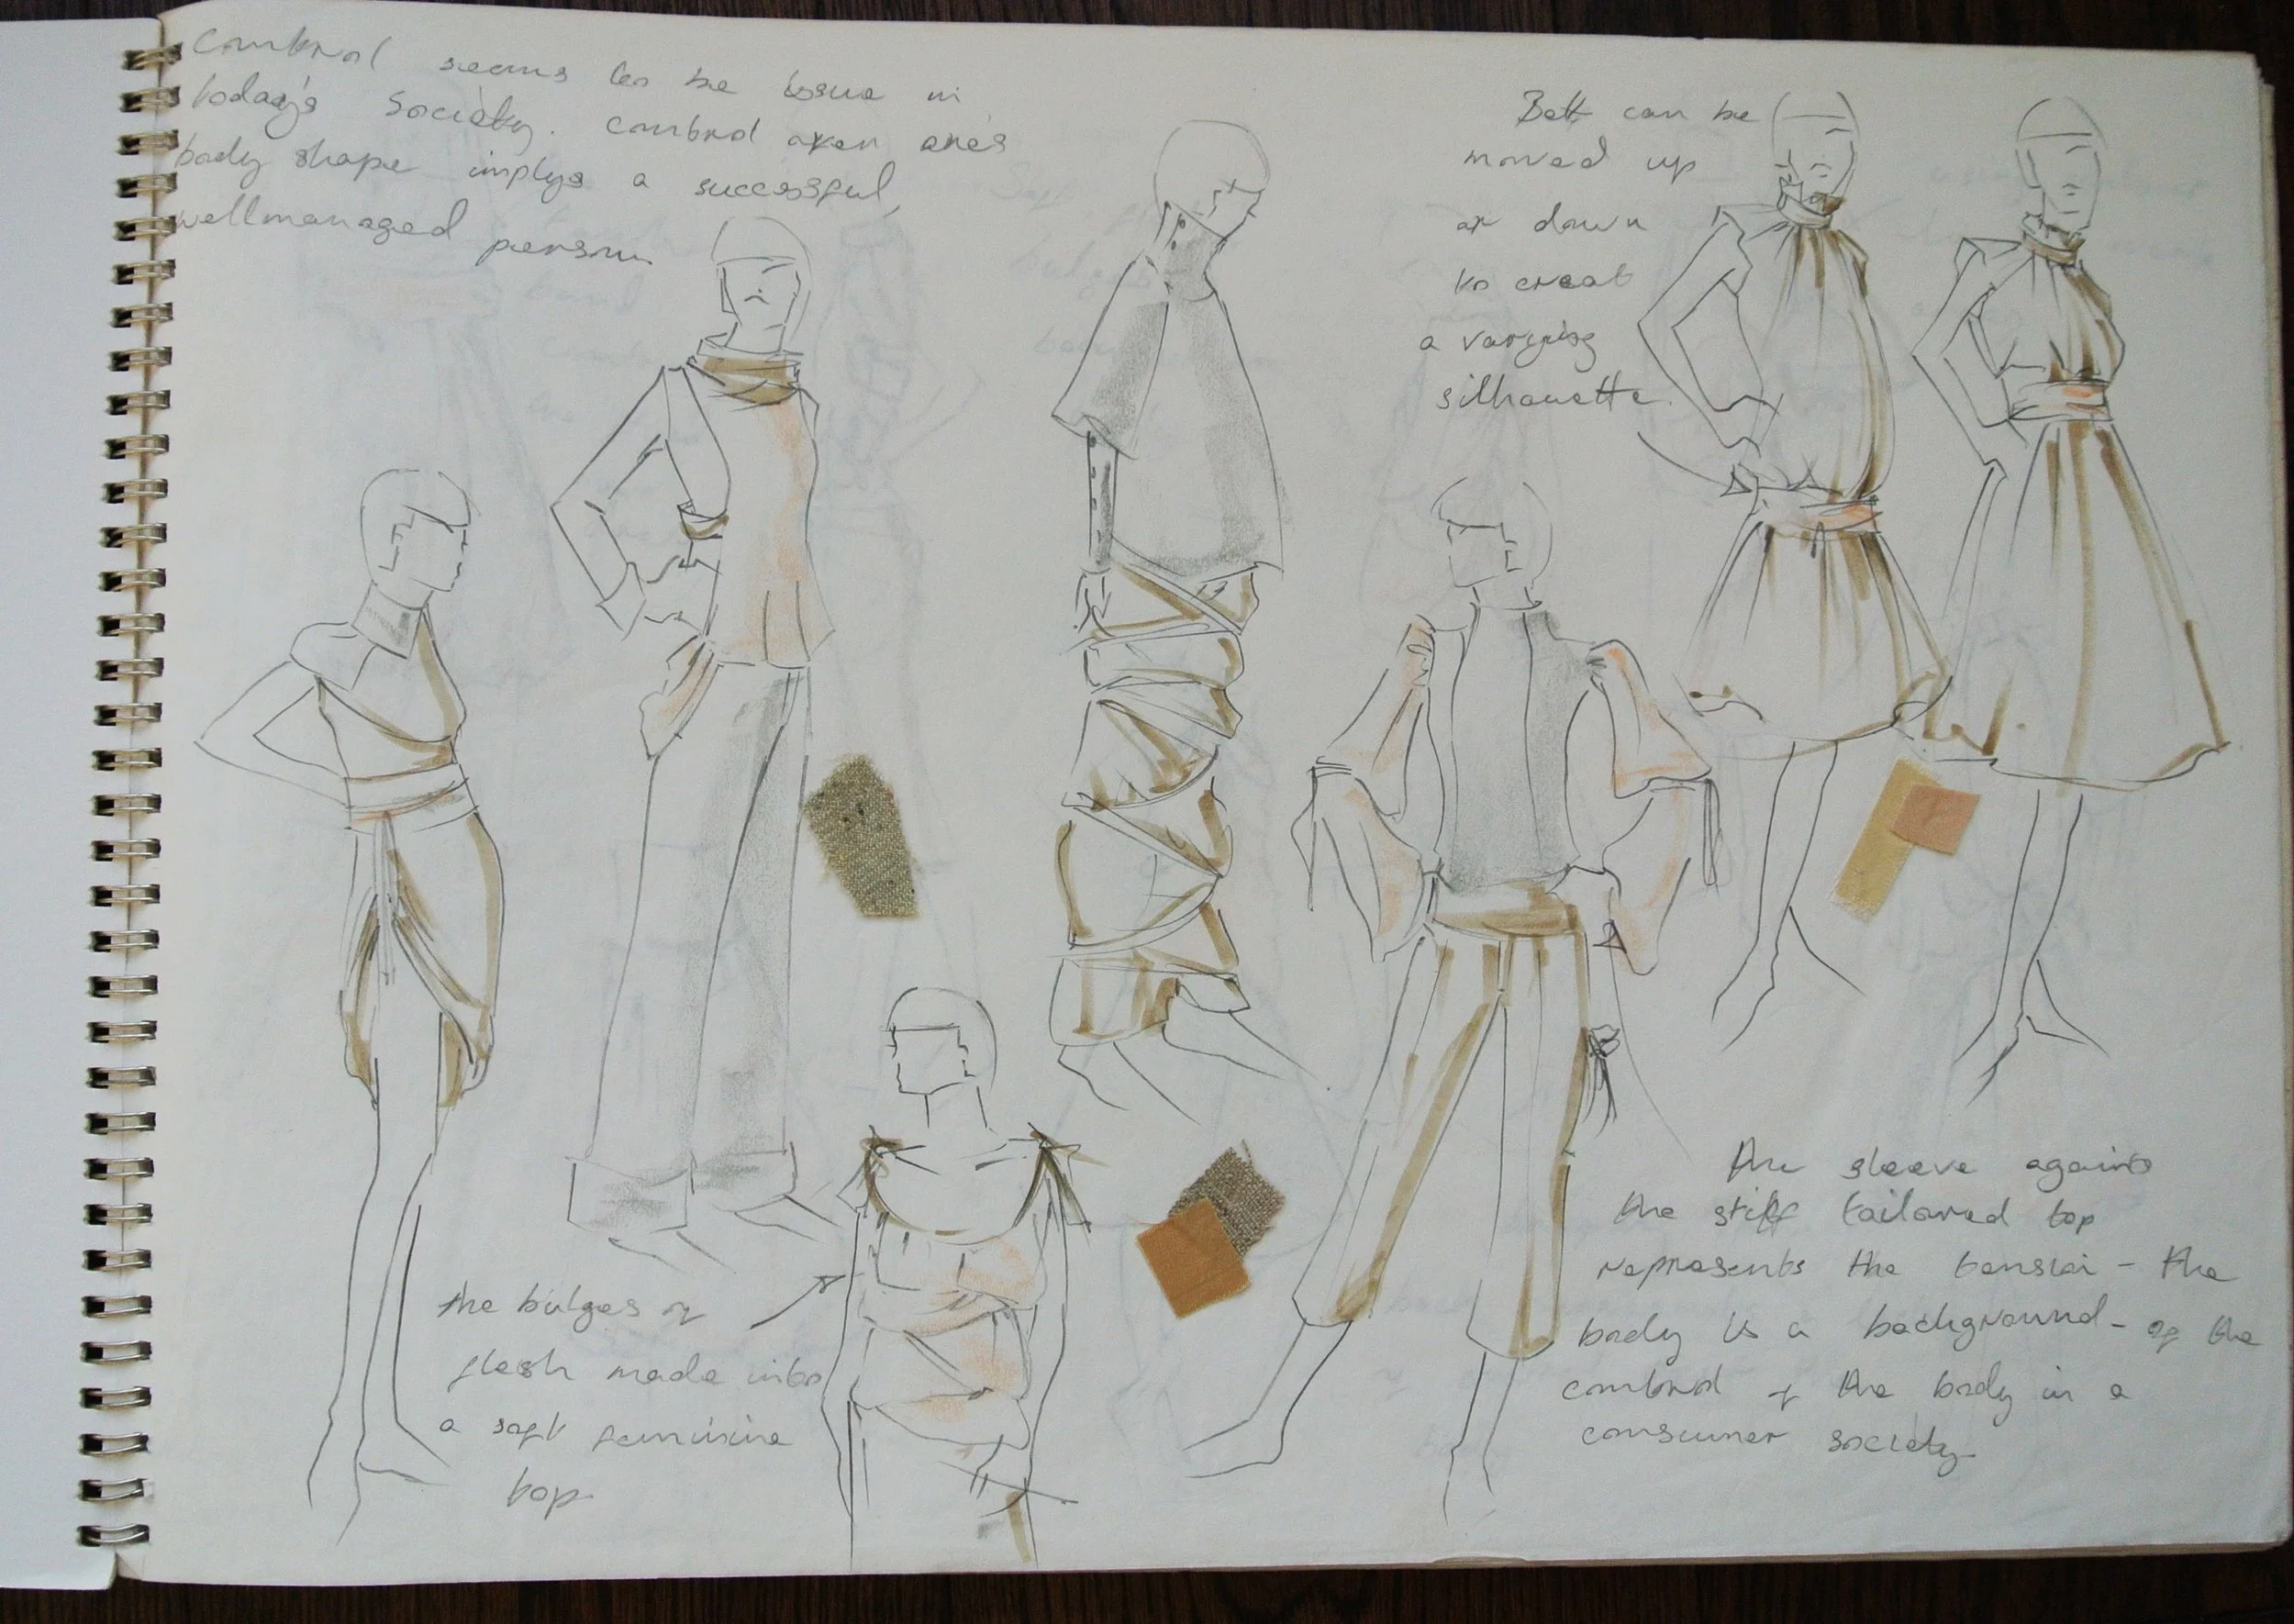 Control seems to be issue in
today's society. Control over one's
body shape implys a successful,
wellmanaged person
Belt can be
moved up
or down
to creat
a varying
silhouette.
the bulges of
flesh made into
a soft feminine
top
the sleeve agains
the stiff tailored top
represents the tension - the
body is a background - of the
control of the body in a
consumer society